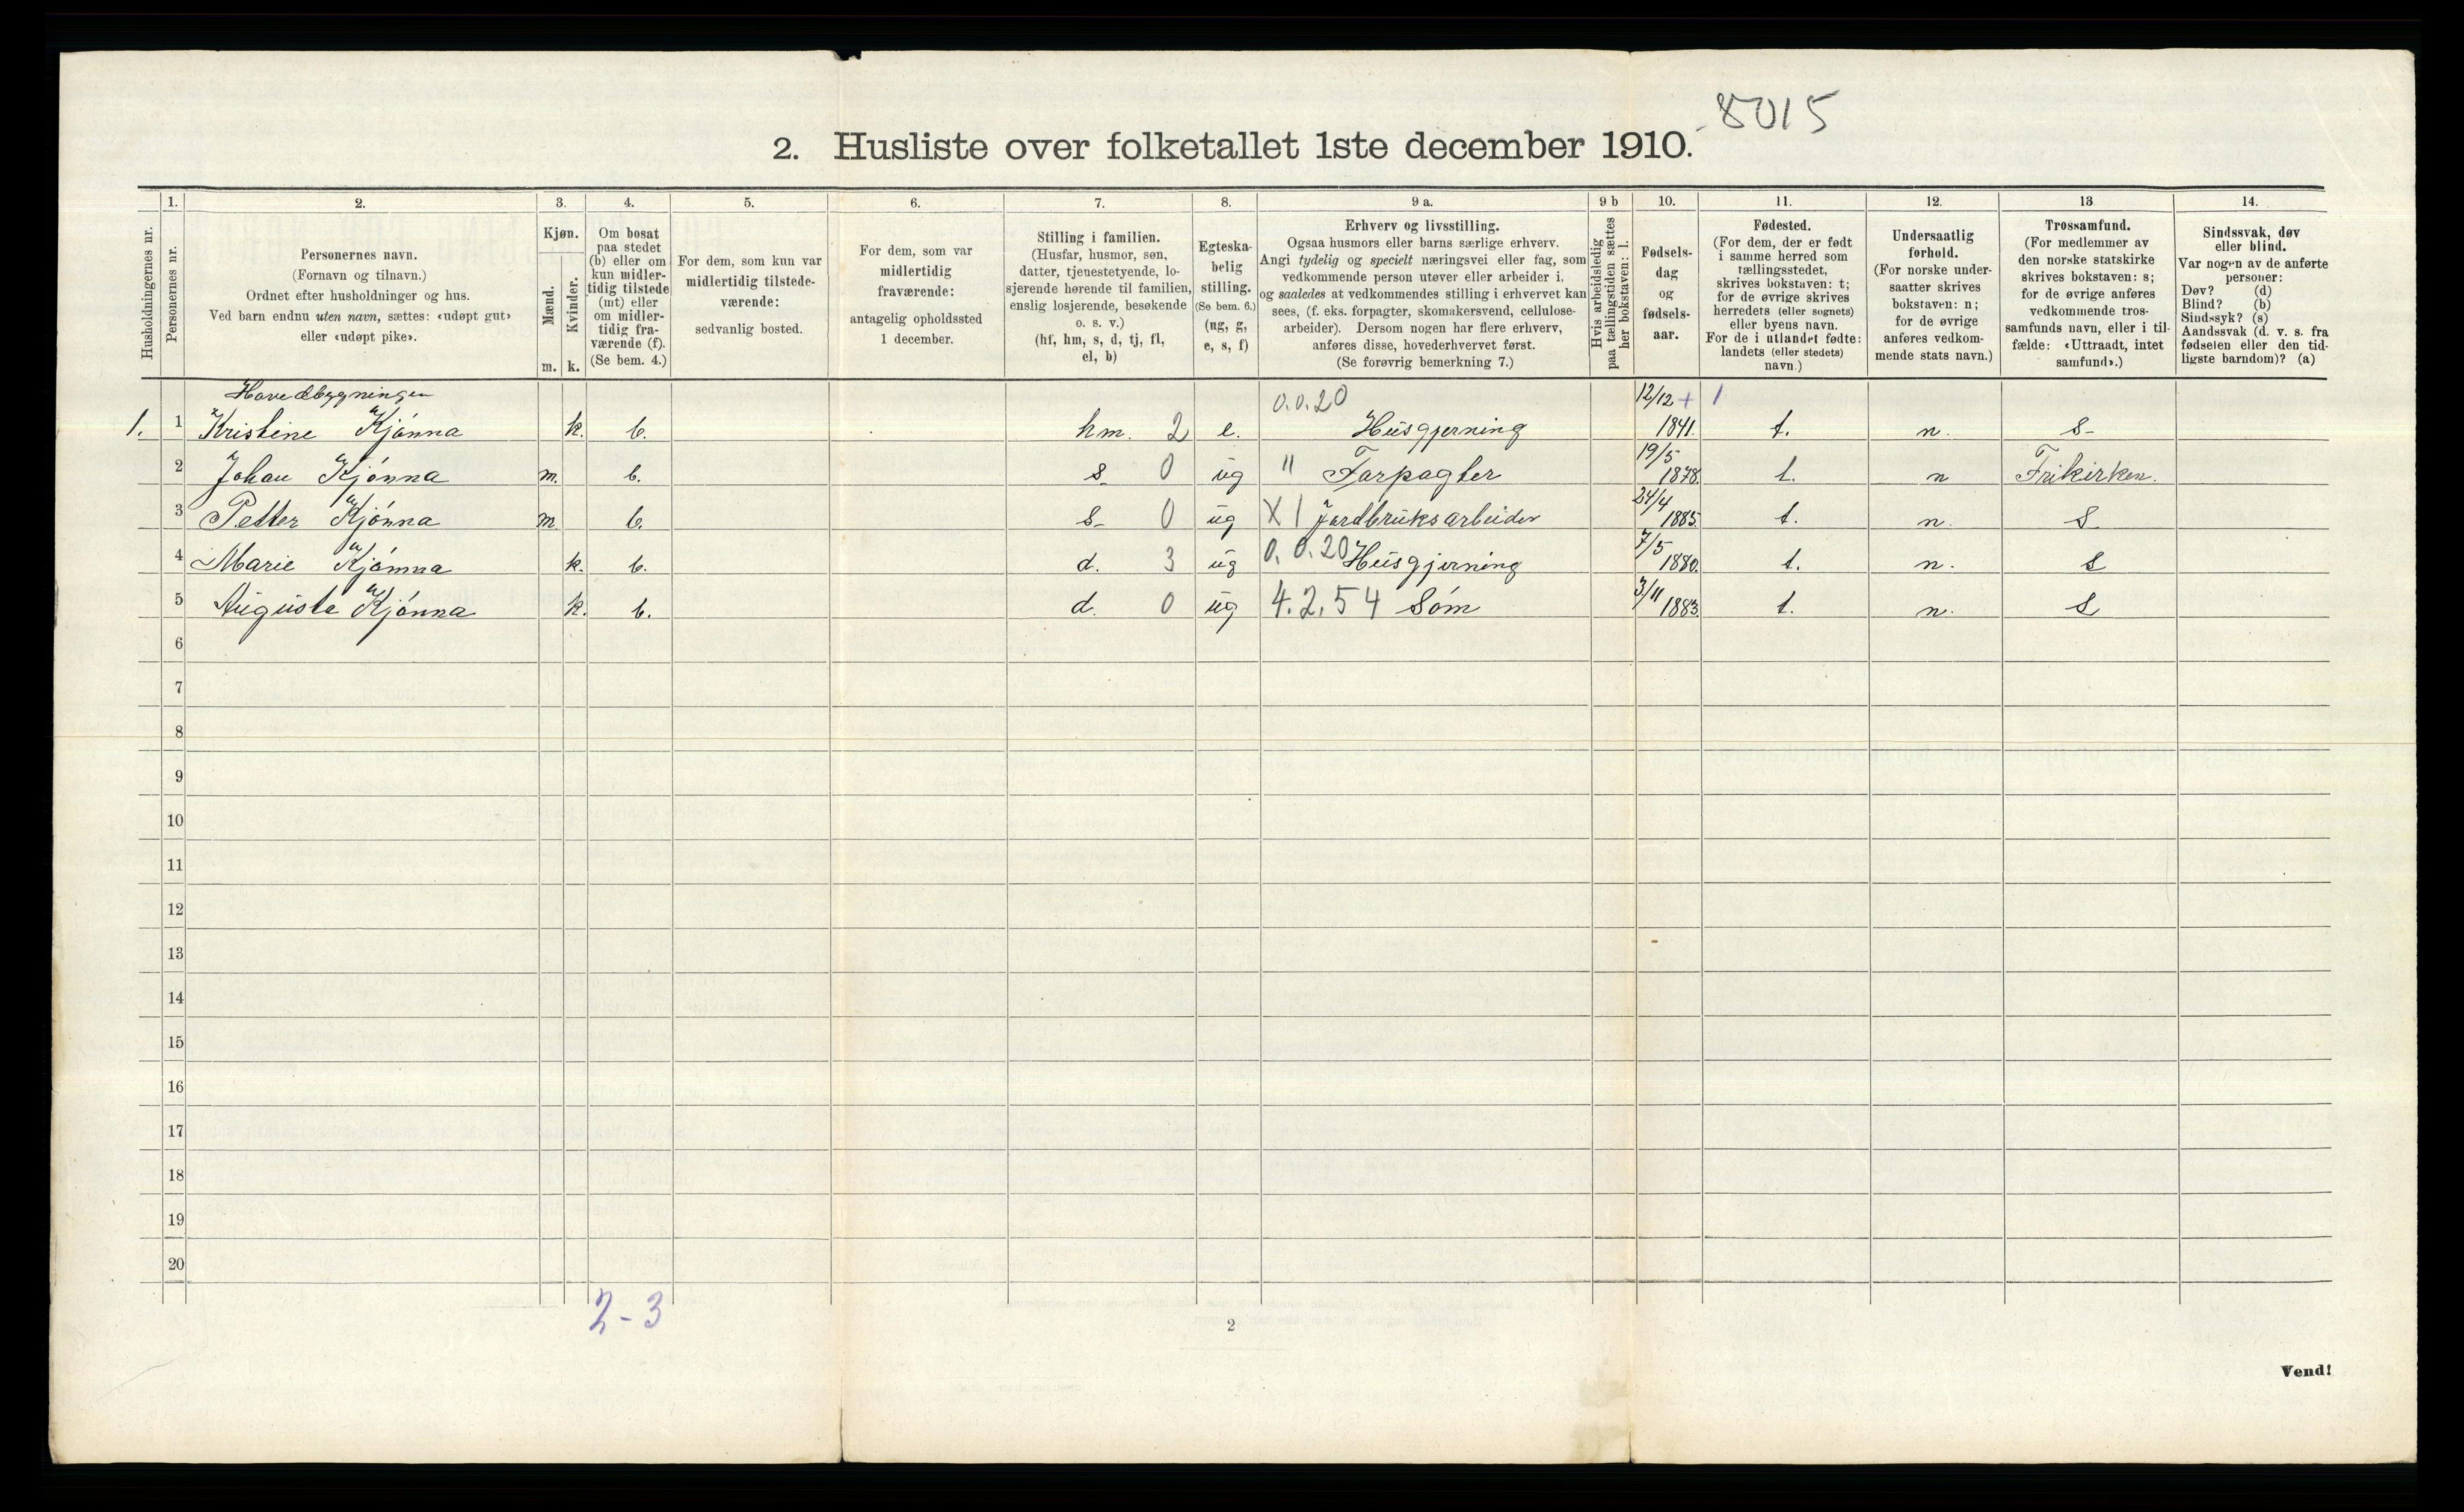 8015
2. Husliste over folketallet 1ste december 1910.
Husholdningernes nr.
1.
Personernes nr.
2.
Personernes navn.
(Fornavn og tilnavn.)
Ordnet efter husholdninger og hus.
Ved barn endnu uten navn, sættes: «udøpt gut»
eller «udøpt pike».
3.
Kjøn.
Mænd.
Kvinder.
m. k.
4.
Om bosat
paa stedet
(b) eller om
kun midler-
tidig tilstede
(mt) eller
om midler-
tidig fra-
værende (f).
(Se bem. 4.)
5.
For dem, som kun var
midlertidig tilstede-
værende:
sedvanlig bosted.
6.
For dem, som var
midlertidig
fraværende:
antagelig opholdssted
1 december.
7.
Stilling i familien.
(Husfar, husmor, søn,
datter, tjenestetyende, lo-
sjerende hørende til familien,
enslig losjerende, besøkende
o. s. v.)
(hf, hm, s, d, tj, fl,
el, b)
8.
Egteska-
belig
stilling.
(Se bem. 6.)
(ug, g,
e, s, f)
9 a.
Erhverv og livsstilling.
Ogsaa husmors eller barns særlige erhverv.
Angi tydelig og specielt næringsvei eller fag, som
vedkommende person utøver eller arbeider i,
og saaledes at vedkommendes stilling i erhvervet kan
sees, (f. eks. forpagter, skomakersvend, cellulose-
arbeider). Dersom nogen har flere erhverv,
anføres disse, hovederhvervet først.
(Se forøvrig bemerkning 7.)
9 b
Hvis arbeidsledig
paa tællingstiden sættes
her bokstaven: l.
10.
Fødsels-
dag
og
fødsels-
aar.
11.
Fødested.
(For dem, der er født
i samme herred som
tællingsstedet,
skrives bokstaven: t;
for de øvrige skrives
herredets (eller sognets)
eller byens navn.
For de i utlandet fødte:
landets (eller stedets)
navn.)
12.
Undersaatlig
forhold.
(For norske under-
saatter skrives
bokstaven: n;
for de øvrige
anføres vedkom-
mende stats navn.)
13
Trossamfund.
(For medlemmer av
den norske statskirke
skrives bokstaven: s;
for de øvrige anføres
vedkommende tros-
samfunds navn, eller i til-
fælde: «Uttraadt, intet
samfund».)
14.
Sindssvak, døv
eller blind.
Var nogen av de anførte
personer:
Døv? (d)
Blind? (b)
Sindssyk? (s)
Aandssvak (d. v. s. fra
fødselen eller den tid-
ligste barndom)? (a)
Hovedbygningen 0.0.20 12/12 + 1
1. 1 Kristine Kjønna k. b. hm. 2 e. Husgjerning 1841. t. n. s-
2 Johan Kjønna m. b. s 0 ug " Forpagter 19/5 1878. t. n Frikirken.
3 Petter Kjønna m b. s- 0 ug X 1 Jordbruksarbeider 24/4 1885 t. n. s
4 Marie Kjønna k. b. d. 3 ug 0.0.20 Husgjerning 7/5 1880. t. n. s
5 Augusta Kjønna k. b. d. 0 ug 4.2.54 Søm 3/11 1883. t. n. s
6
7
8
9
10
11
12
13
14
15
16
17
18
19
20
2-3
2
Vend!